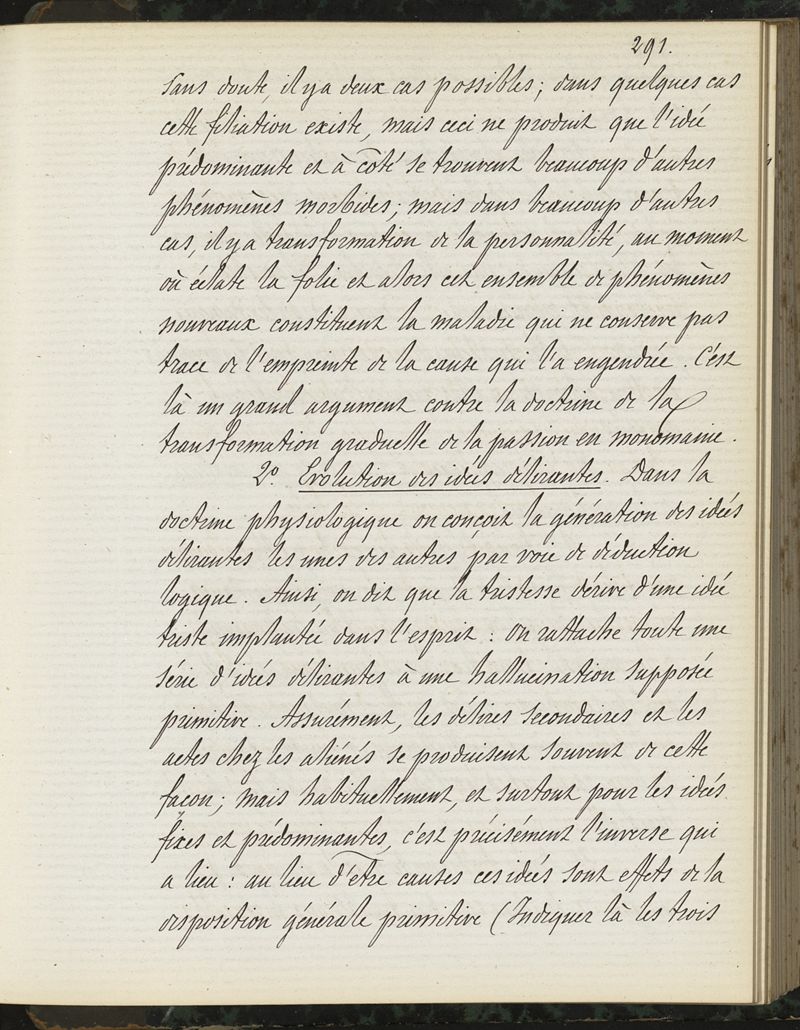 291.
Sans doute, il y a deux cas possibles; dans quelques cas
cette filiation existe, mais ceci ne produit que l'idée
prédominante et à côté se trouvent beaucoup d'autres
phénomènes morbides; mais dans beaucoup d'autres
cas, il y a transformation de la personnalité, au moment
où éclate la folie et alors cet ensemble de phénomènes
nouveaux constituent la maladie qui ne conserve pas
trace de l'empreinte de la cause qui l'a engendrée. C'est
là un grand argument contre la doctrine de la
transformation graduelle de la passion en monomanie.
2° Evolution des idées délirantes. Dans la
doctrine physiologique on conçoit la génération des idées
délirantes les unes des autres par voie de déduction
logique. Ainsi, on dit que la tristesse dérive d'une idée
triste implantée dans l'esprit: on rattache toute une
série d'idées délirantes à une hallucination supposée
primitive. Assurément, les délires secondaires et les
actes chez les aliénés se produisent souvent de cette
façon; mais habituellement, et surtout pour les idées
fixes et prédominantes, c'est précisément l'inverse qui
a lieu: au lieu d'être causes ces idées sont effets de la
disposition générale primitive (Indiquer là les trois